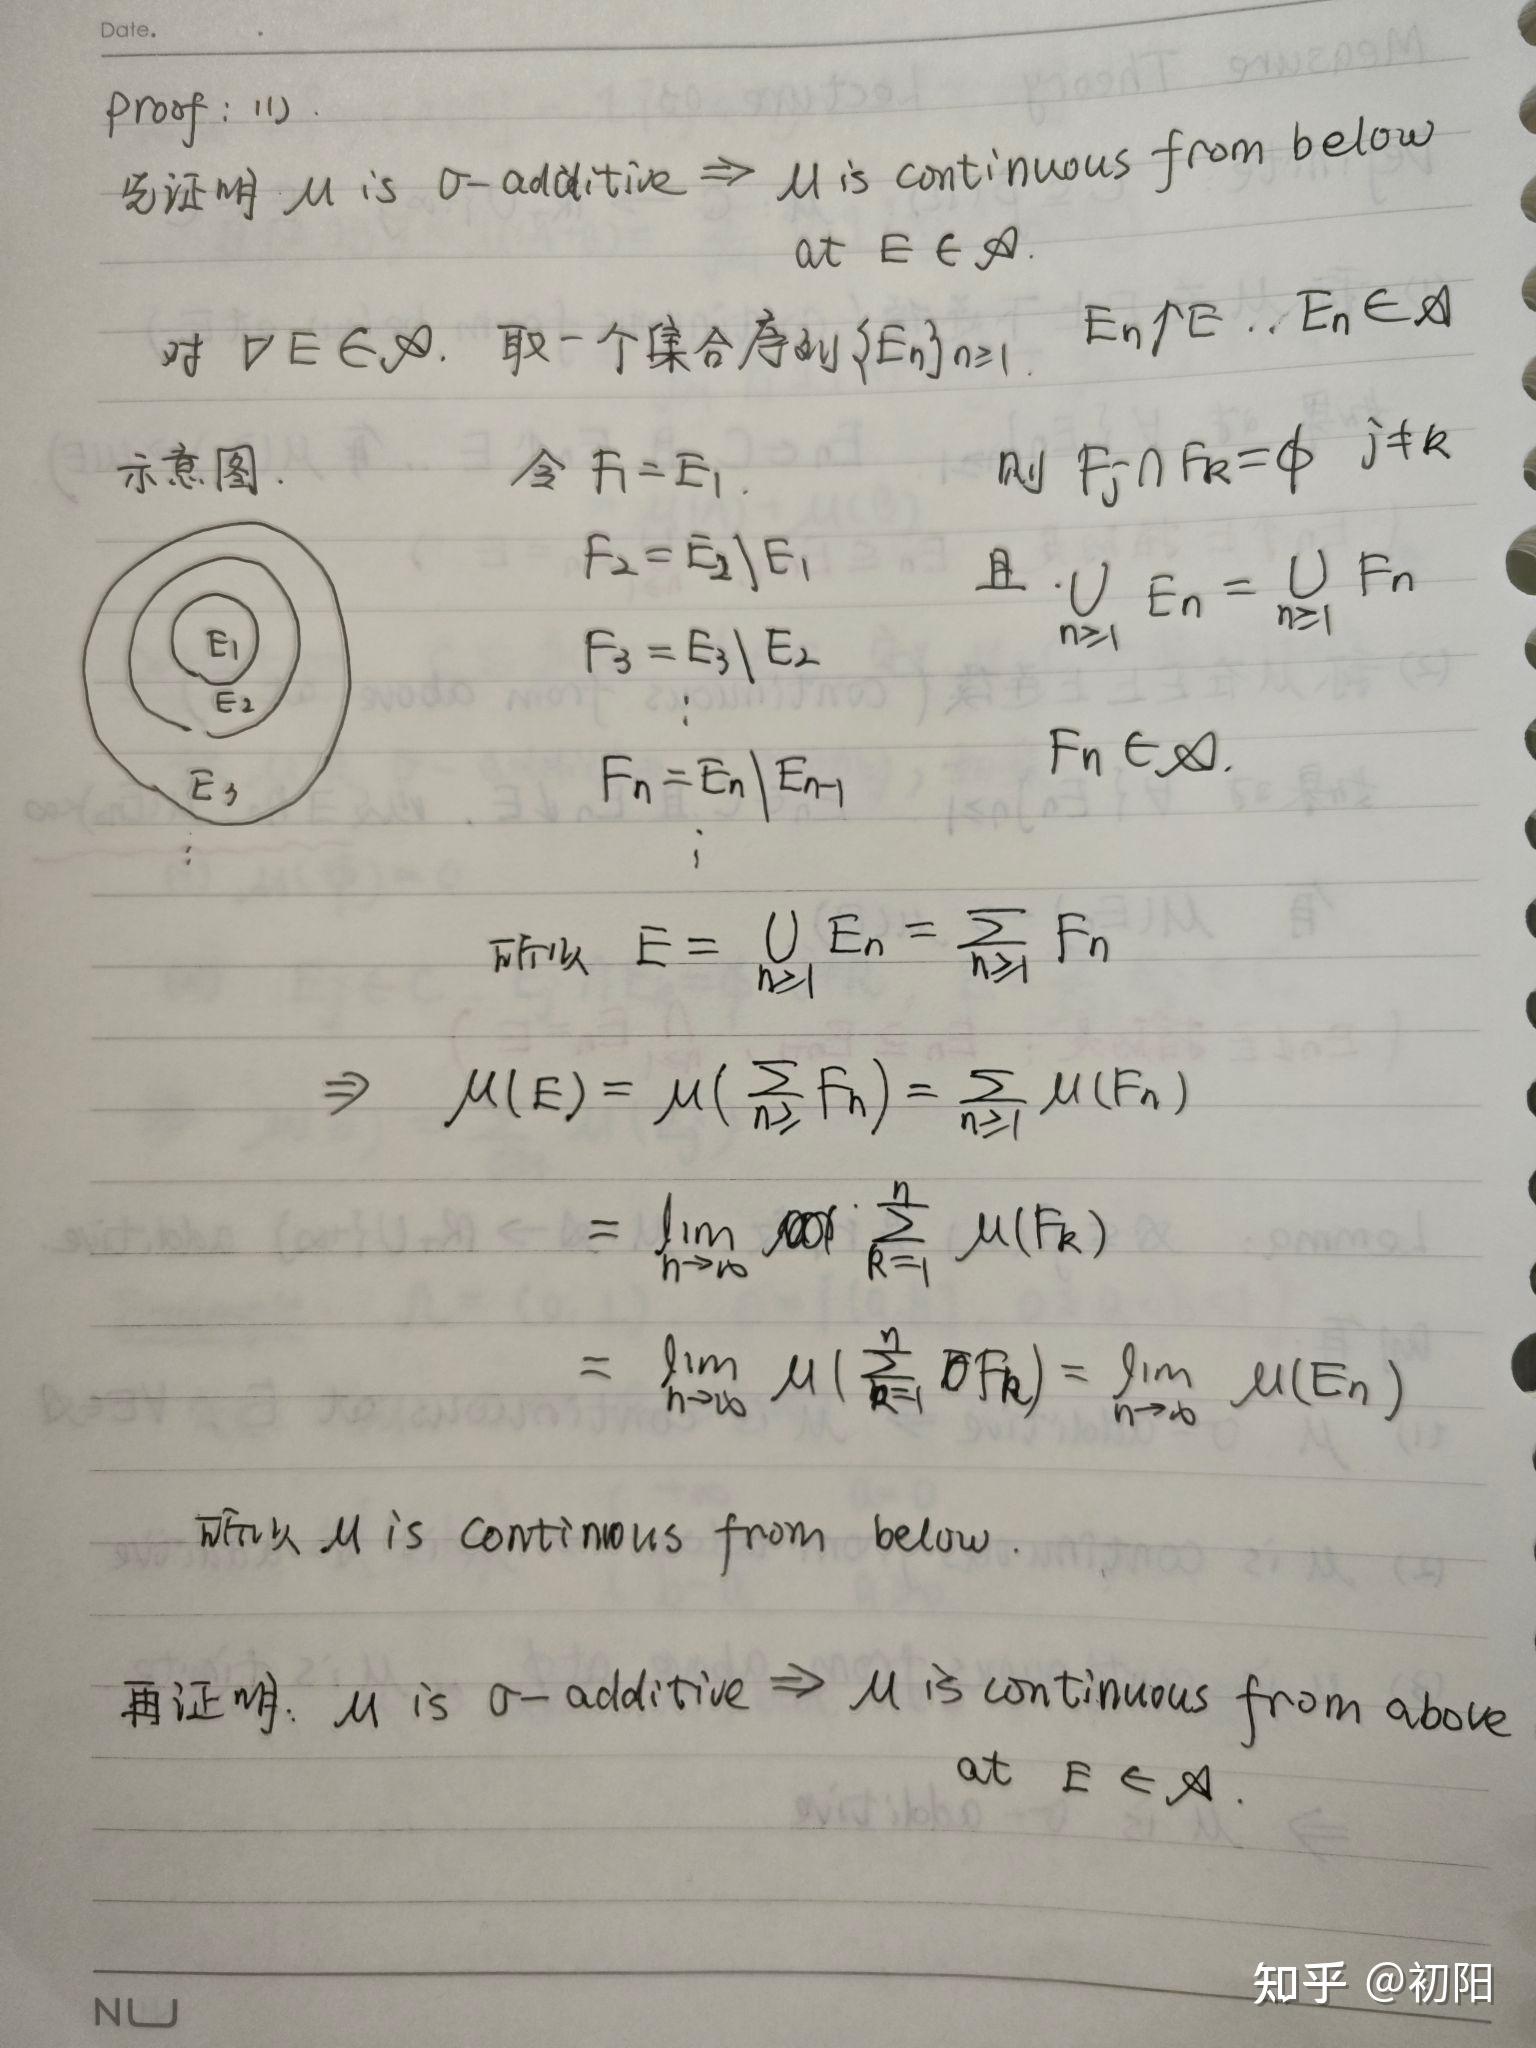 Date.
proof: (1).
先证明 μ is σ-additive ⇒ μ is continuous from below
at E ∈ 𝒜.
对 ∀E ∈ 𝒜. 取一个集合序列{En}n≥1. En↑E .. En ∈ 𝒜
示意图. 令 F1 = E1. 则 Fj ∩ Fk = ϕ j ≠ k
F2 = E2 \ E1 且 ∪n≥1 En = ∪n≥1 Fn
E1
F3 = E3 \ E2
E2
⋮
Fn = En \ En-1 Fn ∈ 𝒜.
E3
⋮ ⋮
所以 E = ∪n≥1 En = Σn≥1 Fn
⇒ μ(E) = μ(Σn≥ Fn) = Σn≥1 μ(Fn)
= lim n→∞ Σ k=1 n μ(Fk)
= lim n→∞ μ(Σ k=1 n Fk) = lim n→∞ μ(En)
所以 μ is continuous from below.
再证明: μ is σ-additive ⇒ μ is continuous from above
at E ∈ 𝒜.
知乎 @初阳